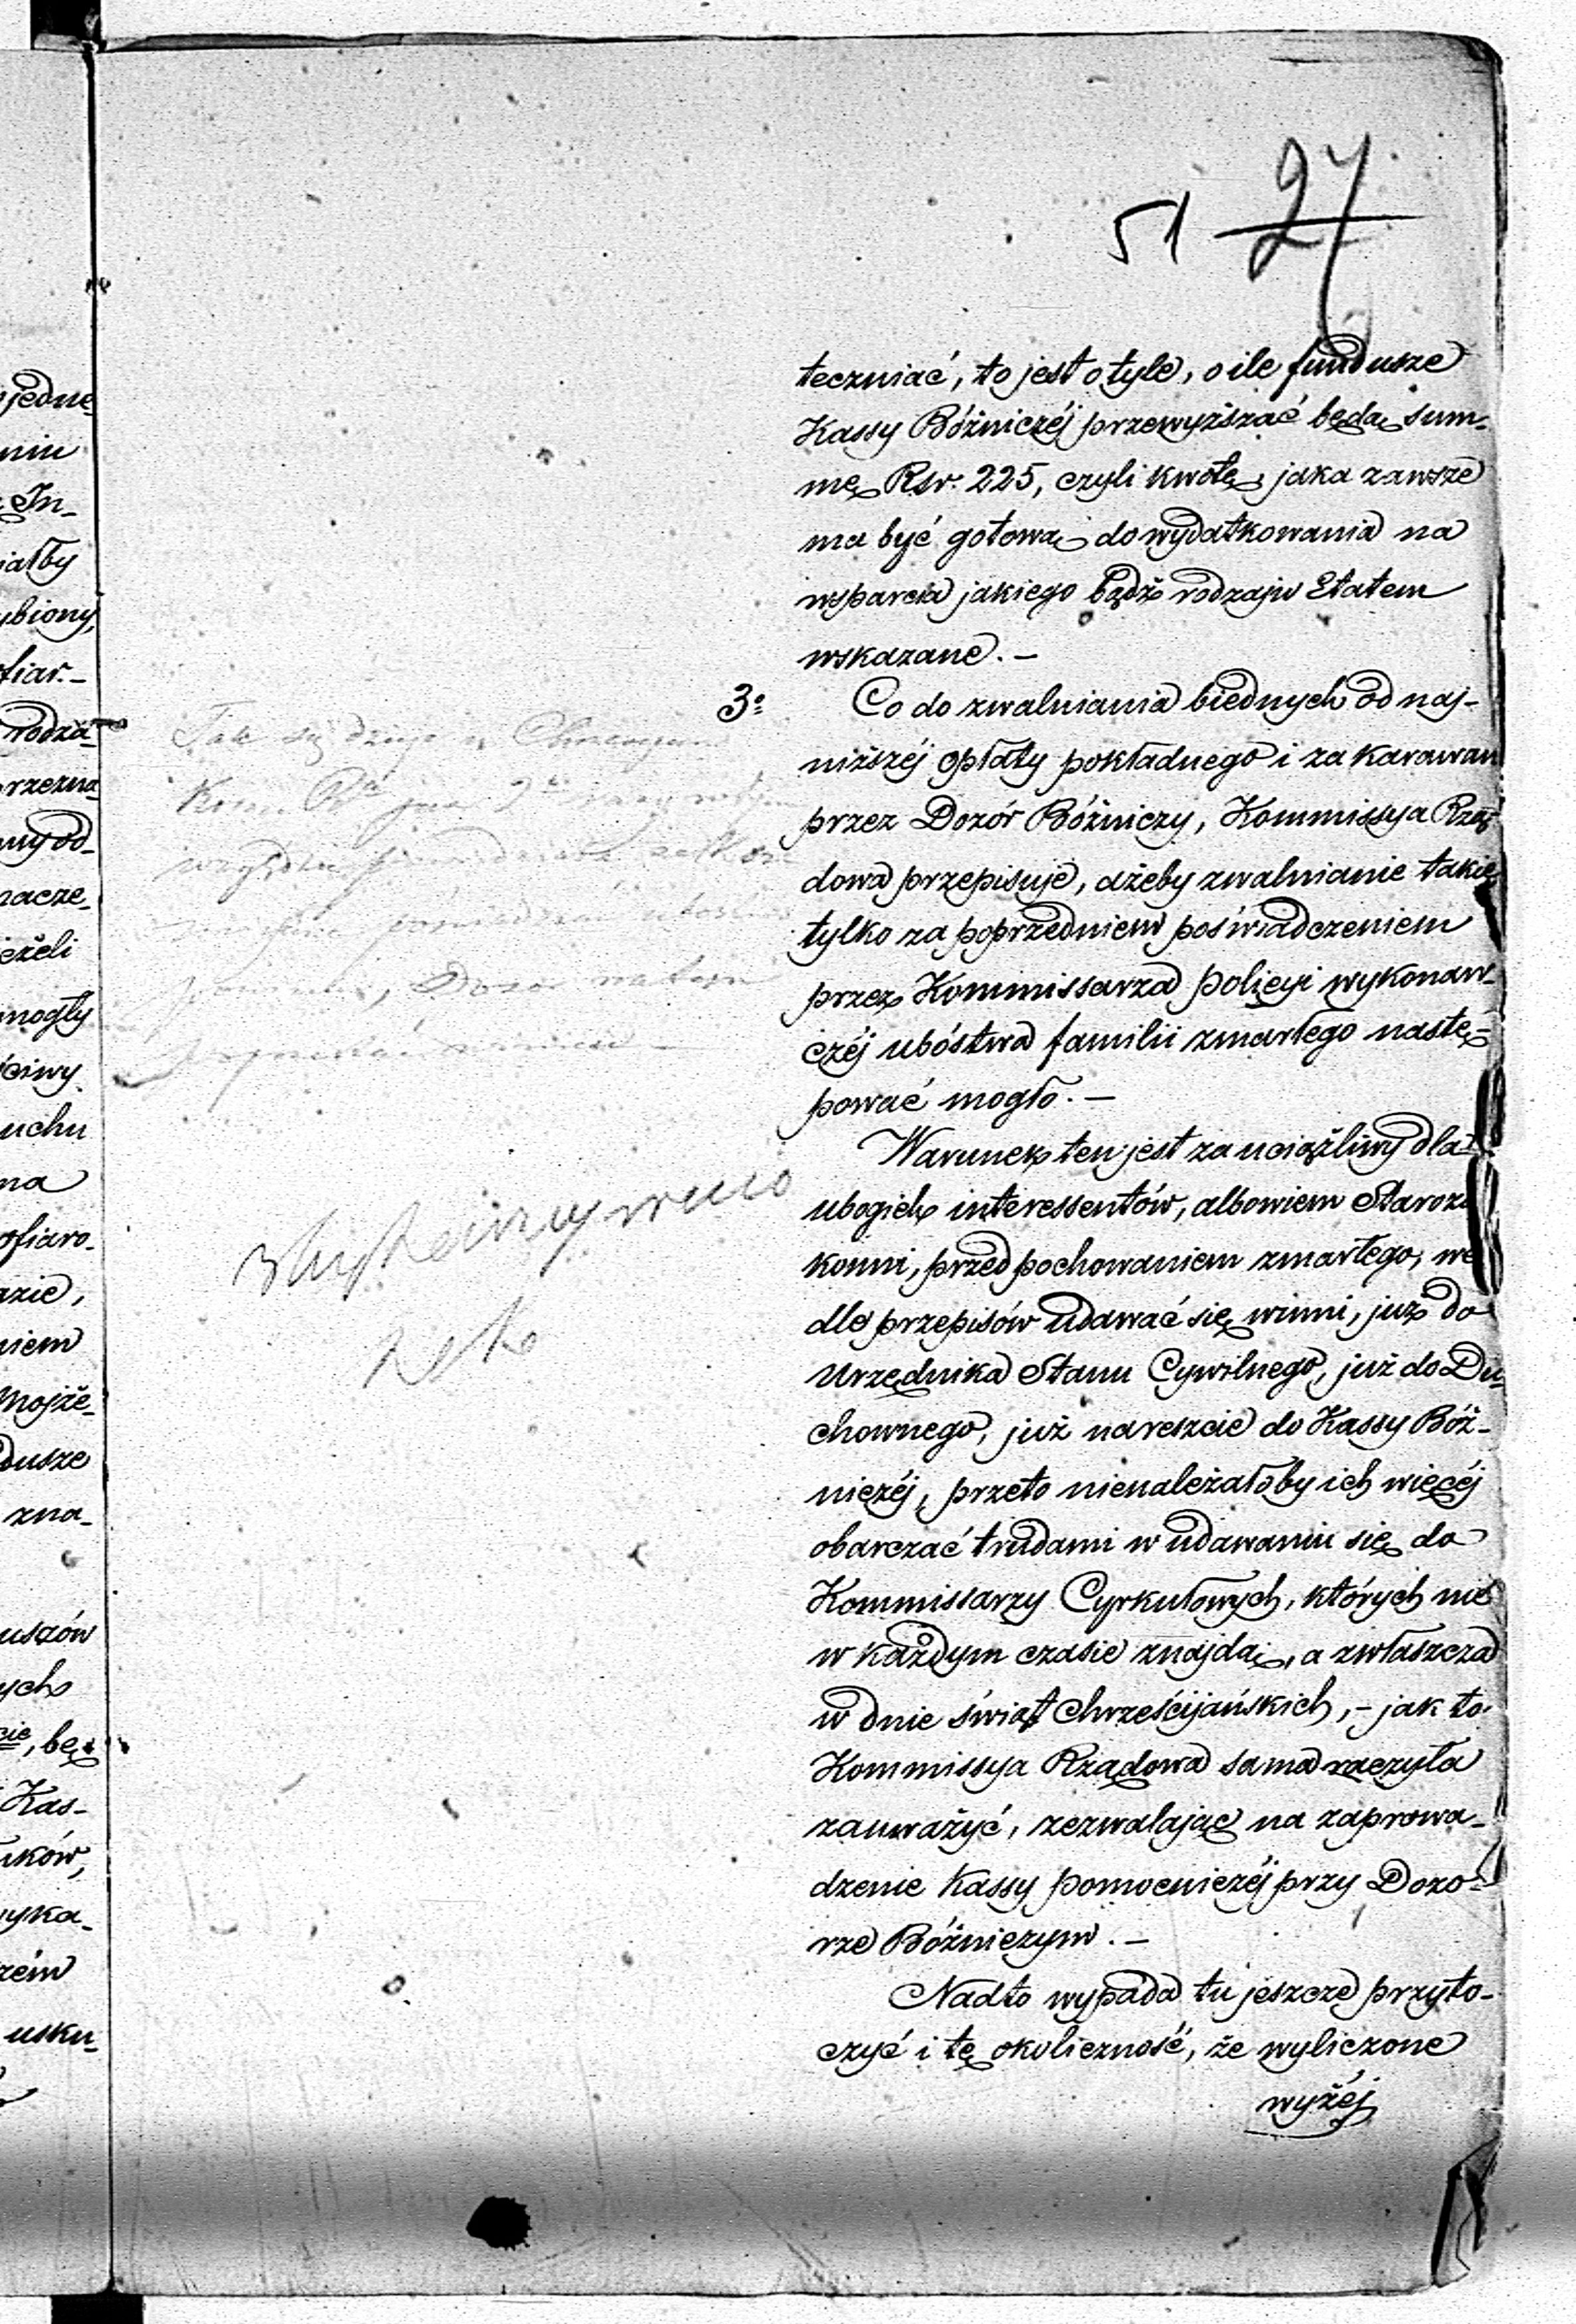 51 27
teczniać, to jest o tyle, o ile fundusze
Kassy Bóżniczéj przewyższać będą sum-
mę Rsr. 225, czyli kwotę, jaka zawsze
ma być gotową do wydatkowania na
wsparcia jakiego bądź rodzaju Etatem
wskazane. —
3o Co do zwalniania biednych od naj-
niższéj opłaty pokładnego i za karawan
przez Dozór Bóżniczy, Kommissya Rzą-
dowa przepisuje, ażeby zwalnianie takie
tylko za poprzedniem poświadczeniem
przez Kommissarza Policyi wykonaw-
czéj ubóstwa familii zmarłego nastę-
pować mogło. —
Warunek ten jest za uciążliwy dla
ubogich interessentów, albowiem Staroza-
konni, przed pochowaniem zmarłego, we-
dle przepisów udawać się winni, już do
Urzędnika Stanu Cywilnego, już do Du-
chownego, już nareszcie do Kassy Bóż-
niczéj, przeto nienależałoby ich więcéj
obarczać trudami w udawaniu się do
Kommissarzy Cyrkułowych, których nie
w każdym czasie znajdą, a zwłaszcza
w dnie świąt Chrześcijańskich, - jak to
Kommissya Rządowa sama raczyła
zauważyć, zezwalając na zaprowa-
dzenie Kassy pomocniczéj przy Dozo-
rze Bóżniczym. —
Nadto wypada tu jeszcze przyto-
czyć i tę okoliczność, że wyliczone
wyżéj
Tak się dzieje u Chrześcijan
jedne
In-
fiar.-
rodza-
ny od-
nacze-
jeżeli
mogły
uchu
na
ofiaro-
azie,
niem
Mojże-
dusze
zna-
uszów
ych
cie, bę-
Kas-
nków,
wyka-
usku-